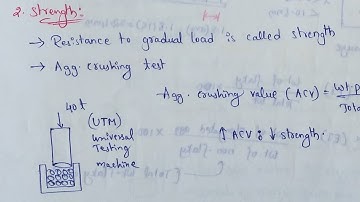 2. Strength:
→ Resistance to gradual load is called strength
→ Agg. crushing test
Agg. crushing value (ACV) = wt.
Total
40t
(UTM)
universal
Testing
machine
↑ ACV : ↓ strength: